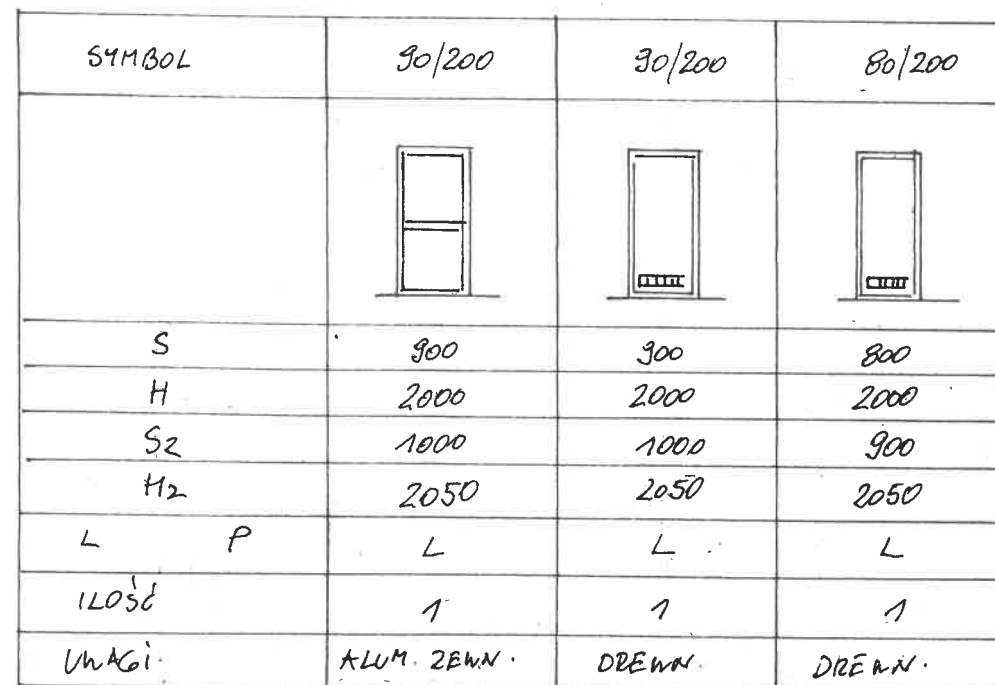 SYMBOL 90/200 90/200 80/200
S 900 900 800
H 2000 2000 2000
S2 1000 1000 900
H2 2050 2050 2050
L P L L L
ILOŚĆ 1 1 1
UWAGI. ALUM. ZEWN. DREWN. DREWN.